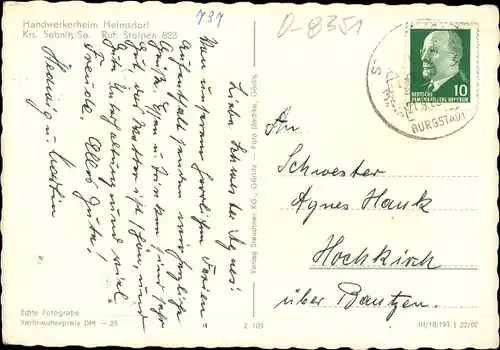 737
D-8351
Handwerkerheim Helmsdorf
Krs. Sebnitz/Sa. Ruf: Stolpen 823
Liebe Schwester Agnes!
Von unserem herrlichen Ferien=
aufenthalt senden wir herzliche
Grüße. Essen u. trinken sind sehr
gut, das Wetter ist schön, und
gute Unterhaltung und viel
Freude. Alles Gute!
Hedwig u.
An
Schwester
Agnes Hauk
Hochkirch
über Bautzen.
DEUTSCHE
DEMOKRATISCHE REPUBLIK
10
BURGSTADT
Verlag Standtner KG., Görlitz – Foto Jäschke, Görlitz
Echte Fotografie
Verbraucherpreis DM —.25
Z 109
III/18/197 I 22/62